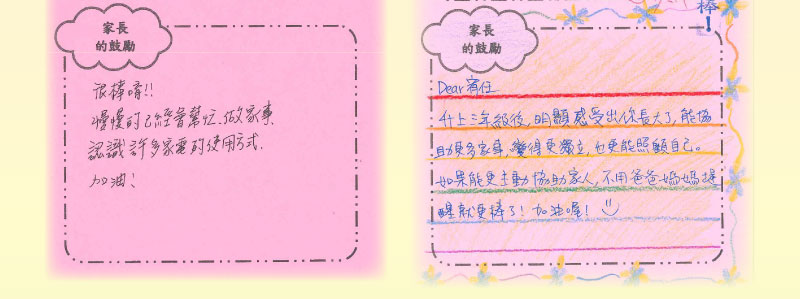 家長
的鼓勵
很棒唷!!
慢慢的已經會幫忙做家事、
認識許多家電的使用方式.
加油!
棒!
家長
的鼓勵
Dear宥任
升上三年級後,明顯感受出你長大了,能協
助更多家事,變得更獨立,也更能照顧自己。
如果能更主動協助家人,不用爸爸媽媽提
醒就更棒了!加油喔!